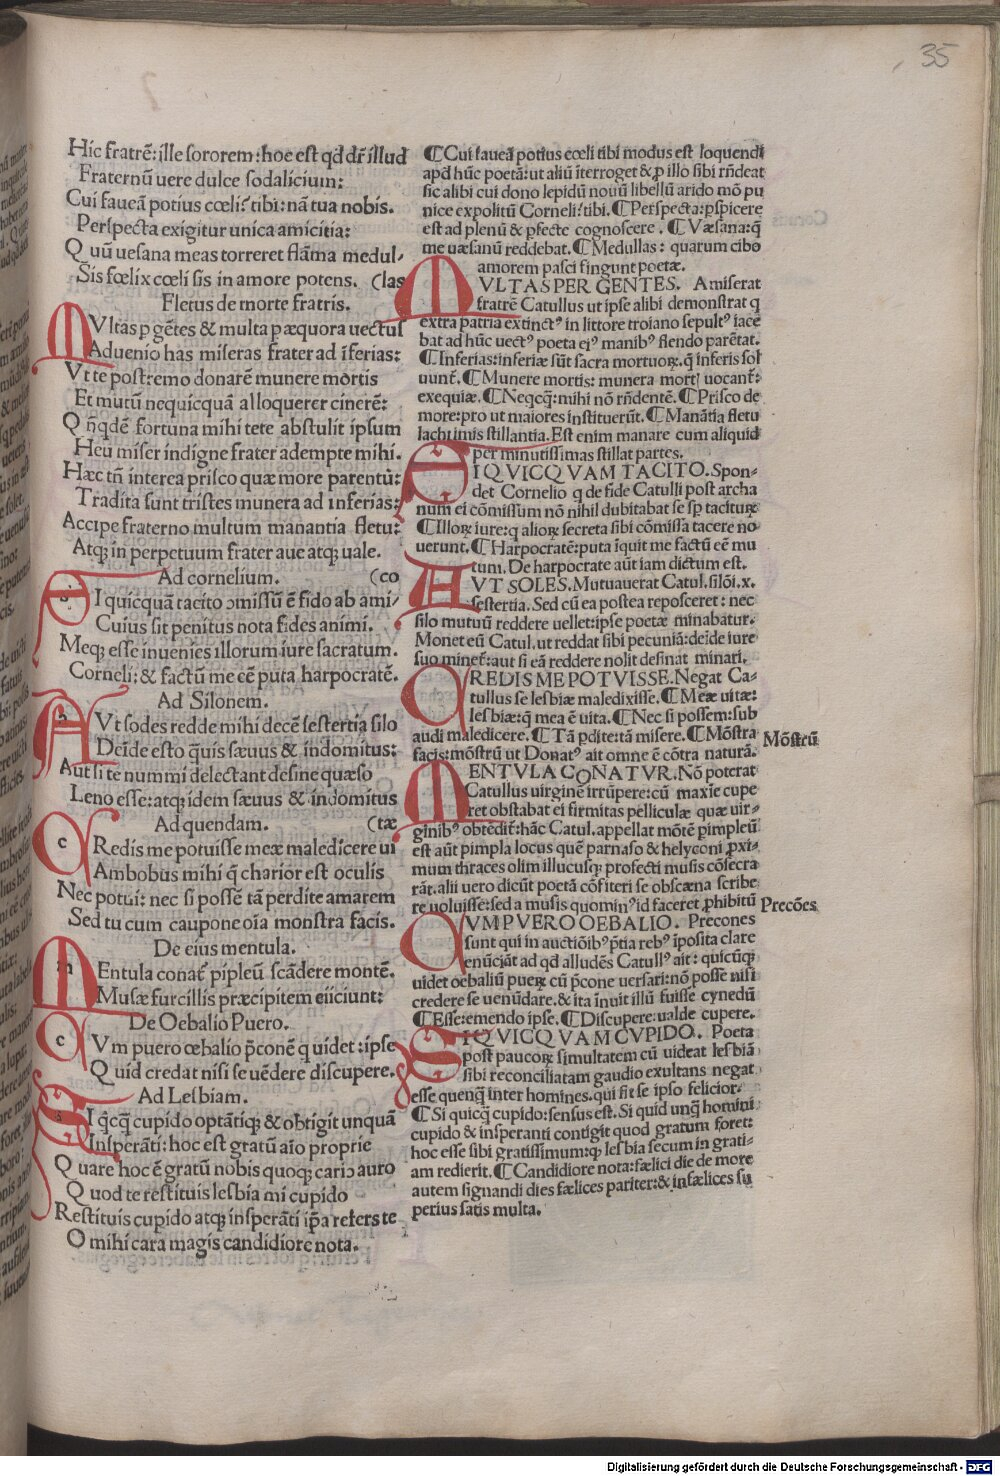 35
Hic fratrē: ille sororem: hoc est qd dr̄ illud
Fraternū uere dulce sodalicium:
Cui faueā potius cœli? tibi: nā tua nobis.
Perspecta exigitur unica amicitia:
Q uū uesana meas torreret flāma medul-
Sis fœlix cœli sis in amore potens. (las
Fletus de morte fratris.
M Vltas p gētes & multa p æquora uectus
Aduenio has miseras frater ad īferias:
Vt te postremo donarē munere mortis
Et mutū nequicquā alloquerer cinerē:
Q ñqdē fortuna mihi tete abstulit ipsum
Heu miser indigne frater adempte mihi.
Hæc tñ interea prisco quæ more parentū:
Tradita sunt tristes munera ad inferias:
Accipe fraterno multum manantia fletu:
Atq; in perpetuum frater aue atq; uale.
Ad cornelium. (co
S I quicquā tacito ↄmissū ē fido ab ami-
Cuius sit penitus nota fides animi.
Meq; esse inuenies illorum iure sacratum.
Corneli: & factū me eē puta harpocratē.
Ad Silonem.
A Vt sodes redde mihi decē sestertia silo
Deīde esto q̄uis sæuus & indomitus:
Aut si te nummi delectant desine quæso
Leno esse: atq; idem sæuus & indomitus
Ad quendam. (tæ
C Redis me potuisse meæ maledicere ui
Ambobus mihi q̄ charior est oculis
Nec potui: nec si possē tā perdite amarem
Sed tu cum caupone oīa monstra facis.
De eius mentula.
M Entula conat̄ pipleū scādere montē.
Musæ furcillis præcipitem eiiciunt:
De Oebalio Puero.
C Vm puero œbalio p̄conē q uidet: ipse
Q uid credat nisi se uēdere discupere.
Ad Lesbiam.
S I q̇cq̄ cupido optātiq; & obtigit unquā
Insperāti: hoc est gratū aīo proprie
Q uare hoc ē gratū nobis quoq; cario auro
Q uod te restituis lesbia mi cupido
Restituis cupido atq; insperāti ip̄a refers te
O mihi cara magis candidiore nota.
¶ Cui faueā potius cœli tibi modus est loquendi
apd hūc poetā: ut aliū īterroget & p illo sibi rñdeat
sic alibi cui dono lepidū nouū libellū arido mō pu
nice expolitū Corneli? tibi. ¶ Perspecta: pspicere
est ad plenū & pfecte cognoscere. ¶ Væsana: q̄
me uæsanū reddebat. ¶ Medullas: quarum cibo
amorem pasci fingunt poetæ.
M VLTAS PER GENTES. Amiserat
fratrē Catullus ut ipse alibi demonstrat q
extra patria extinctꝰ in littore troiano sepultꝰ iace
bat ad hūc uectꝰ poeta eiꝰ manibꝰ flendo parētat.
¶ Inferias: inferiæ sūt sacra mortuoꝝ. q̄ inferis sol
uunt̄. ¶ Munere mortis: munera mortꝭ uocant̄:
exequiæ. ¶ Neqcq̄: mihi nō rñdentē. ¶ Prisco de
more: pro ut maiores instituerūt. ¶ Manātia fletu
lachrimis stillantia. Est enim manare cum aliquid
per minutissimas stillat partes.
S I QVICQVAM TACITO. Spon-
det Cornelio q de fide Catulli post archa
num ei cōmissum nō nihil dubitabat se sp̄ taciturꝝ
¶ Illoꝝ iure: q alioꝝ secreta sibi cōmissa tacere no-
uerunt. ¶ Harpocratē: puta īquit me factū eē mu
tum. De harpocrate aūt iam dictum est.
A VT SOLES. Mutuauerat Catul. silōi. x.
sestertia. Sed cū ea postea reposceret: nec
silo mutuū reddere uellet: ipse poetæ minabatur.
Monet eū Catul. ut reddat sibi pecuniā: deīde iure
suo minet̄: aut si eā reddere nolit desinat minari.
C REDIS ME POTVISSE. Negat Ca-
tullus se lesbiæ maledixisse. ¶ Meæ uitæ:
lesbiæ: q mea ē uita. ¶ Nec si possem: sub
audi maledicere. ¶ Tā pdite: tā misere. ¶ Mōstra
facis: mōstrū ut Donatꝰ ait omne ē cōtra naturā.
Mōstrū
M ENTVLA CONATVR. Nō poterat
Catullus uirginē irrūpere: cū maxīe cupe
ret obstabat ei firmitas pelliculæ quæ uir-
ginibꝰ obtēdit̄: hāc Catul. appellat mōtē pimpleū
est aūt pimpla locus quē parnaso & helyconi pxi-
mum thraces olim illucusq; profecti musis cōsecra
rāt. alii uero dicūt poetā cōfiteri se obscæna scribe
re uoluisse: sed a musis quominꝰ id faceret phibitū
Precōes
C VM PVERO OEBALIO. Precones
sunt qui in auctiōibꝰ p̄tia rebꝰ īposita clare
enūciāt ad qd alludēs Catullꝰ ait: quicūq;
uidet oebaliū pueꝝ cū p̄cone uersari: nō posse nisi
credere se uenūdare. & ita īnuit illū fuisse cynedū
¶ Esse: emendo ipse. ¶ Discupere: ualde cupere.
S I QVICQVAM CVPIDO. Poeta
post paucoꝝ simultatem cū uideat lesbiā
sibi reconciliatam gaudio exultans negat
esse quenq̄ inter homines. qui sit se ipso felicior.
¶ Si quicq̄ cupido: sensus est. Si quid unq̄ homini
cupido & insperanti contigit quod gratum foret:
hoc esse sibi gratissimum: q; lesbia secum in grati-
am redierit. ¶ Candidiore nota: fælici die de more
autem signandi dies fælices pariter: & infælices su
perius satis multa.
Digitalisierung gefördert durch die Deutsche Forschungsgemeinschaft - DFG